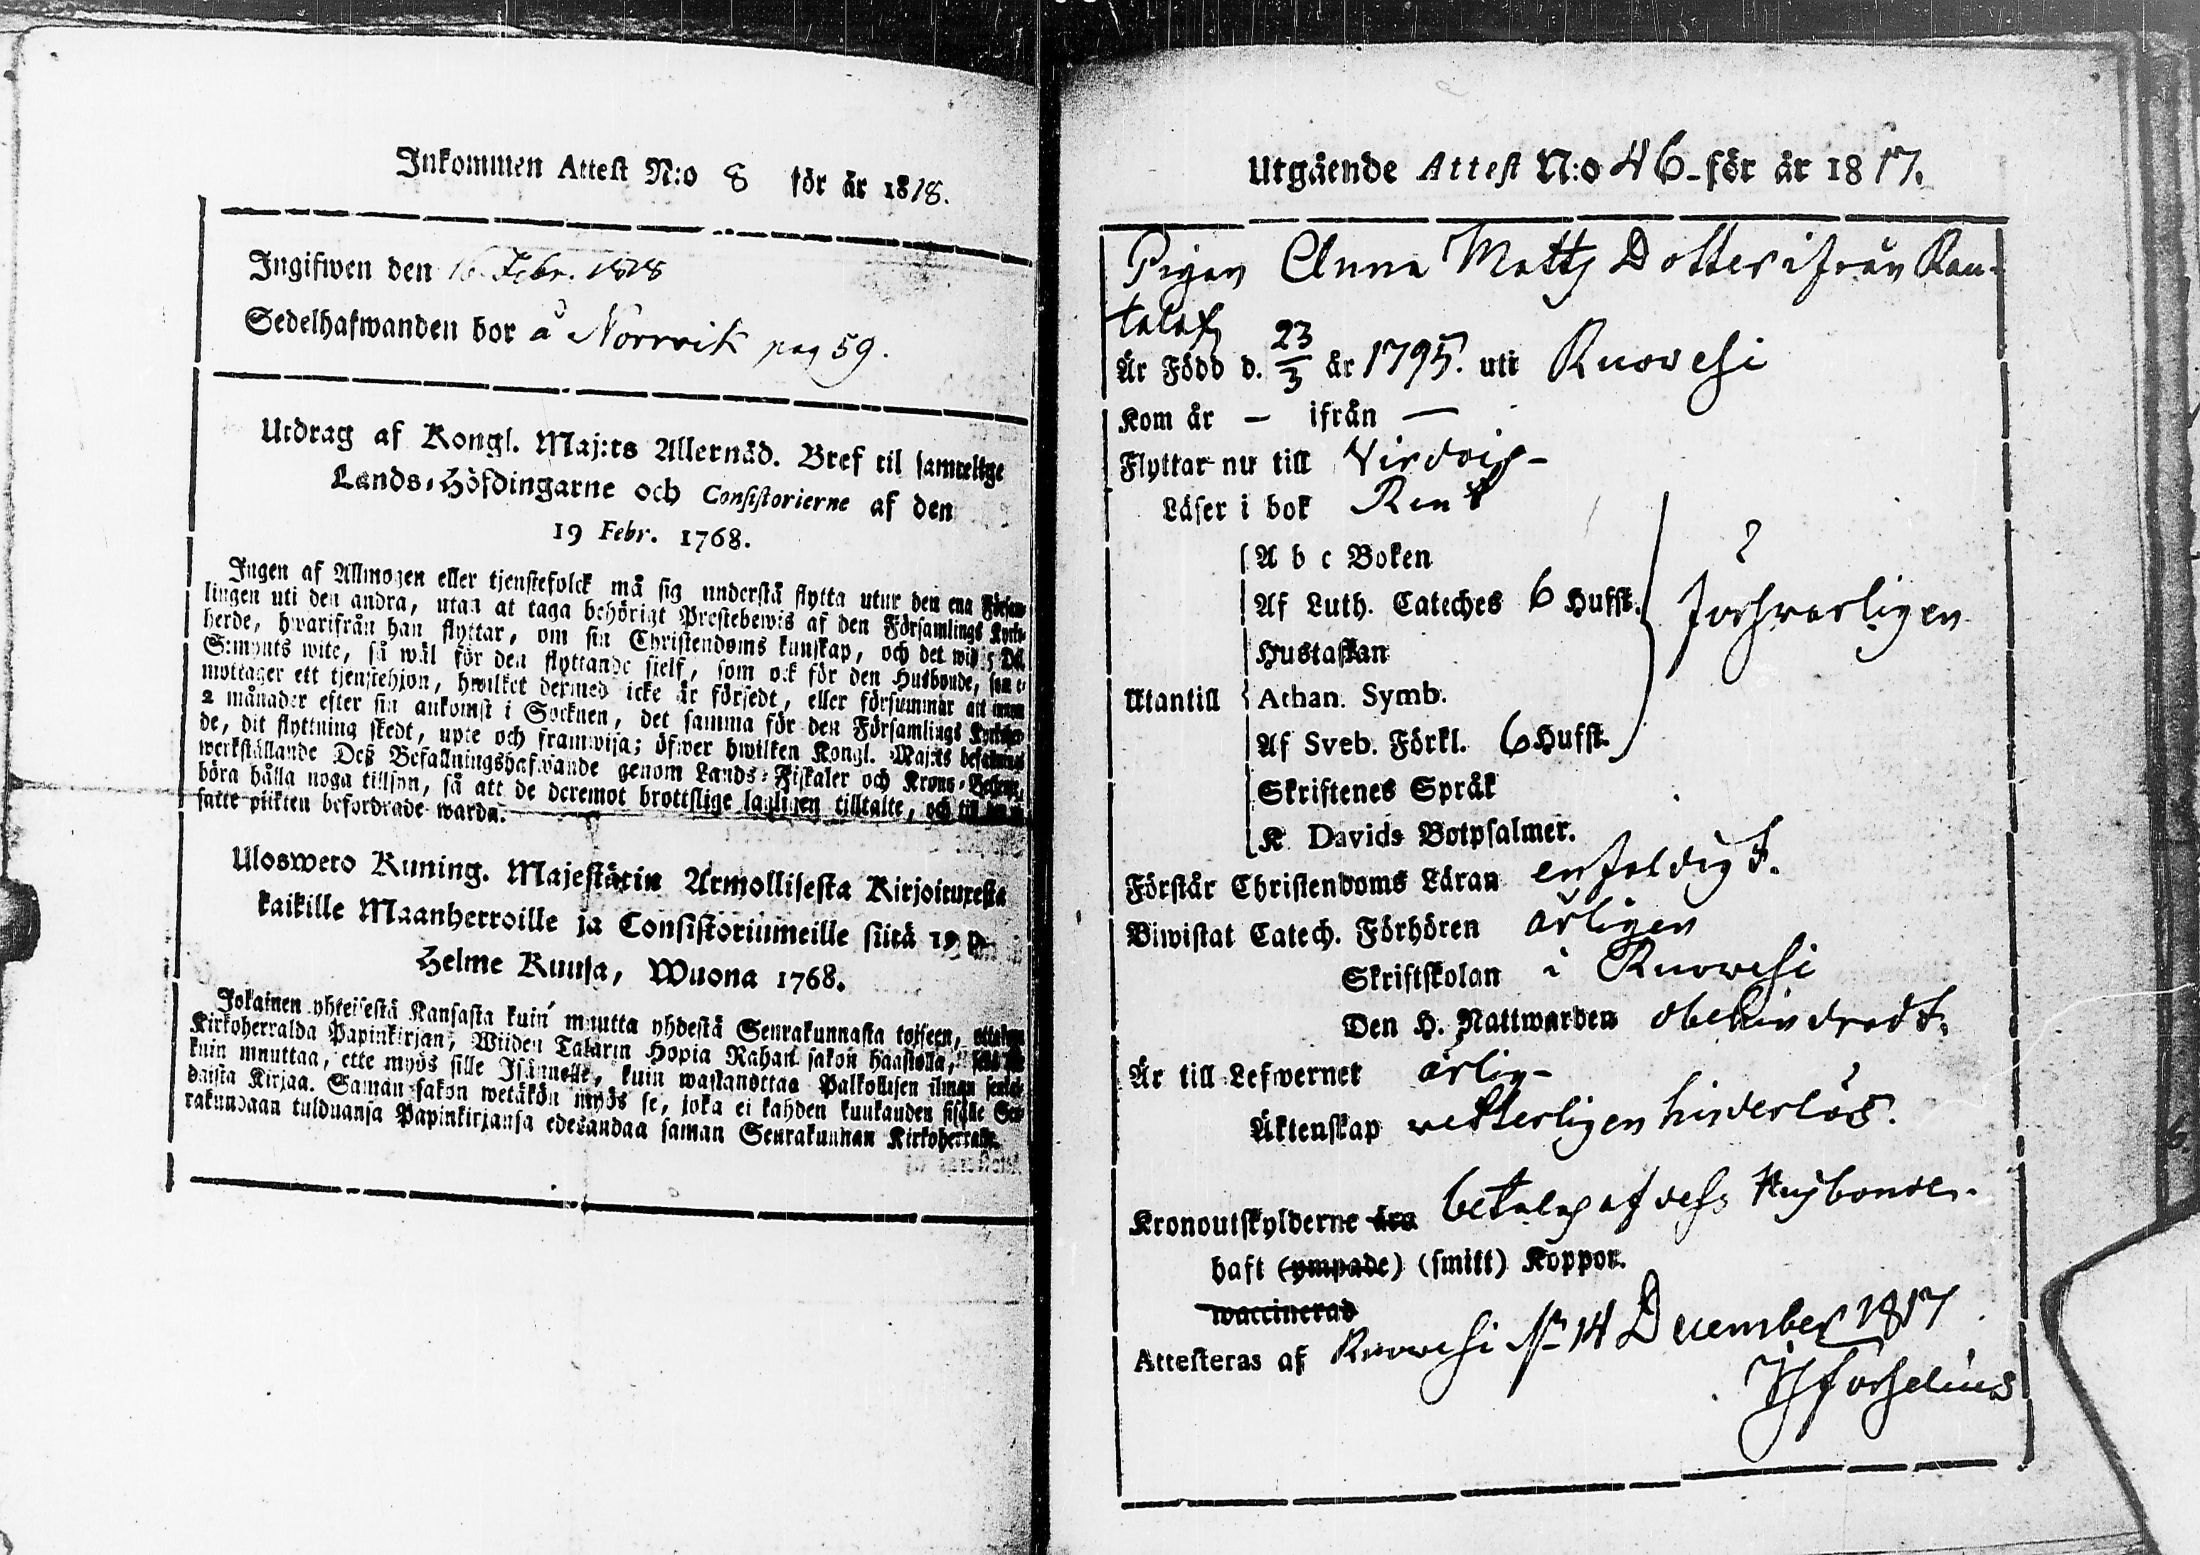 Inkommen Attest N:o 8 för år 1818.
Ingifwen den 16 Febr. 1818
Sedelhafwanden bor å Norrvik pag 59.
Utdrag af Kongl. Maj:ts Allernåd. Bref til samtelige
Lands-Höfdingarne och Consistorierne af den
19 Febr. 1768.
Ingen af Allmogen eller tjenstefolck må sig understå flytta utur den ena Försam-
lingen uti den andra, utan at taga behörigt Prestebewis af den Församlings Kyrko-
herde, hwarifrån han flyttar, om sin Christendoms kunskap, och det wid 5 Dal.
S:mynts wite, så wäl för den flyttande sjelf, som ock för den Husbonde, som e
mottager ett tjenstehjon, hwilket dermed icke är försedt, eller försummar att innom
2 månader efter sin ankomst i Socknen, det samma för den Församlings Kyrkoher-
de, dit flyttning skedt, upte och framwisa; öfwer hwilken Kongl. Maj:ts befallning
werkställande Deß Befallningshafwande genom Lands-Fiskaler och Krono-Betjente
böra hålla noga tillsyn, så att de deremot brottslige lagligen tilltalte, och til
satte plikten befordrade warda.
Ulosweto Kuning. Majestätin Armollisesta Kirjoituxesta
kaikille Maanherroille ja Consistoriumeille siitä 19 p.
Helme Kuusa, Wuona 1768.
Jokainen yhteisestä Kansasta kuin muutta yhdestä Seurakunnasta toiseen, ottakon
Kirkoherralda Papinkirjan, Wiiden Talarin Hopia Rahan sakon haastolla, sekä se
kuin muuttaa, ette myös sille Isännelle, kuin wastanottaa Palkollisen ilman senkal-
daista Kirjaa. Saman sakon wetäkön myös se, joka ei kahden kuukauden sisälle Seu-
rakundaan tulduansa Papinkirjansa edesandaa saman Seurakunnan Kirkoherralle.
Utgående Attest N:o 46 för år 1817.
Pigan Anna Matts Dotter ifrån Kau-
talax
Är Född d. 23/3 år 1795. uti Ruovesi
Kom år — ifrån —
Flyttar nu till Virdois
Läser i bok Rent
A b c Boken
Af Luth. Cateches 6 Hufst.
Hustaflan
Utantill Athan. Symb. försvarligen
Af Sveb. Förkl. 6 Hufst.
Skriftenes Språk
K. Davids Botpsalmer.
Förstår Christendoms Läran enfaldigt.
Biwistat Catech. Förhören årligen
Skriftskolan i Ruowesi
Den H. Nattwarden obehindradt.
Är till Lefwernet ärlig
Äktenskap vetterligen hinderlös.
Kronoutskylderne ära betalas af dess Husbonde.
haft (ympade) (smitt) Koppor.
waccinerad
Attesteras af Ruowesi d. 14 December 1817